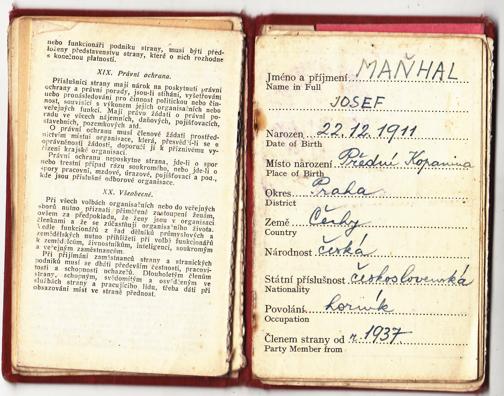 nebo funkcionáři podniku strany, musí býti před-
loženy představenstvu strany, které o nich rozhodne
s konečnou platností.
XIX. Právní ochrana.
Příslušníci strany mají nárok na poskytnutí právní
ochrany a právní porady, jsou-li stíháni, vyšetřováni
nebo pronásledováni pro činnost politickou nebo čin-
nost, souvisící s výkonem jejich organisačních nebo
veřejných funkcí. Mají právo žádati o právní po-
radu ve věcech nájemních, daňových, pojišťovacích,
stavebních, pozemkových atd.
O právní ochranu musí členové žádati prostřed-
nictvím místní organisace, která, přesvědčí-li se o
oprávněnosti žádosti, doporučí ji k příznivému vy-
řízení krajské organisaci.
Právní ochranu neposkytne strana, jde-li o spor
nebo trestní případ rázu soukromého, nebo jde-li o
spory pracovní, mzdové, úrazové, pojišťovací a pod.,
kde jsou příslušné odborové organisace.
XX. Všeobecné.
Při všech volbách organisačních nebo do veřejných
sborů nutno přiznati přiměřené zastoupení ženám,
ovšem za předpokladu, že ženy jsou v organisaci
členkami a že se zúčastňují organisačního života.
Vedle funkcionářů z řad dělníků průmyslových a
zemědělských nutno přihlížeti při volbě funkcionářů
k zemědělcům, živnostníkům, inteligenci, soukromým
a veřejným zaměstnancům.
Při přijímání zaměstnanců strany a stranických
podniků musí se dbáti především čestnosti, pracovi-
tosti a schopnosti uchazečů. Dlouholetým členům
strany, schopným, svědomitým a osvědčeným ve
službách strany a pracujícího lidu, třeba dáti při
obsazování míst ve straně přednost.
Jméno a příjmení MAŇHAL
Name in Full
JOSEF
Narozen 22.12.1911
Date of Birth
Místo národení Přední Kopanina
Place of Birth
Okres Praha
District
Země Čechy
Country
Národnost česká
Státní příslušnost československá
Nationality
Povolání horník
Occupation
Členem strany od r. 1937
Party Member from